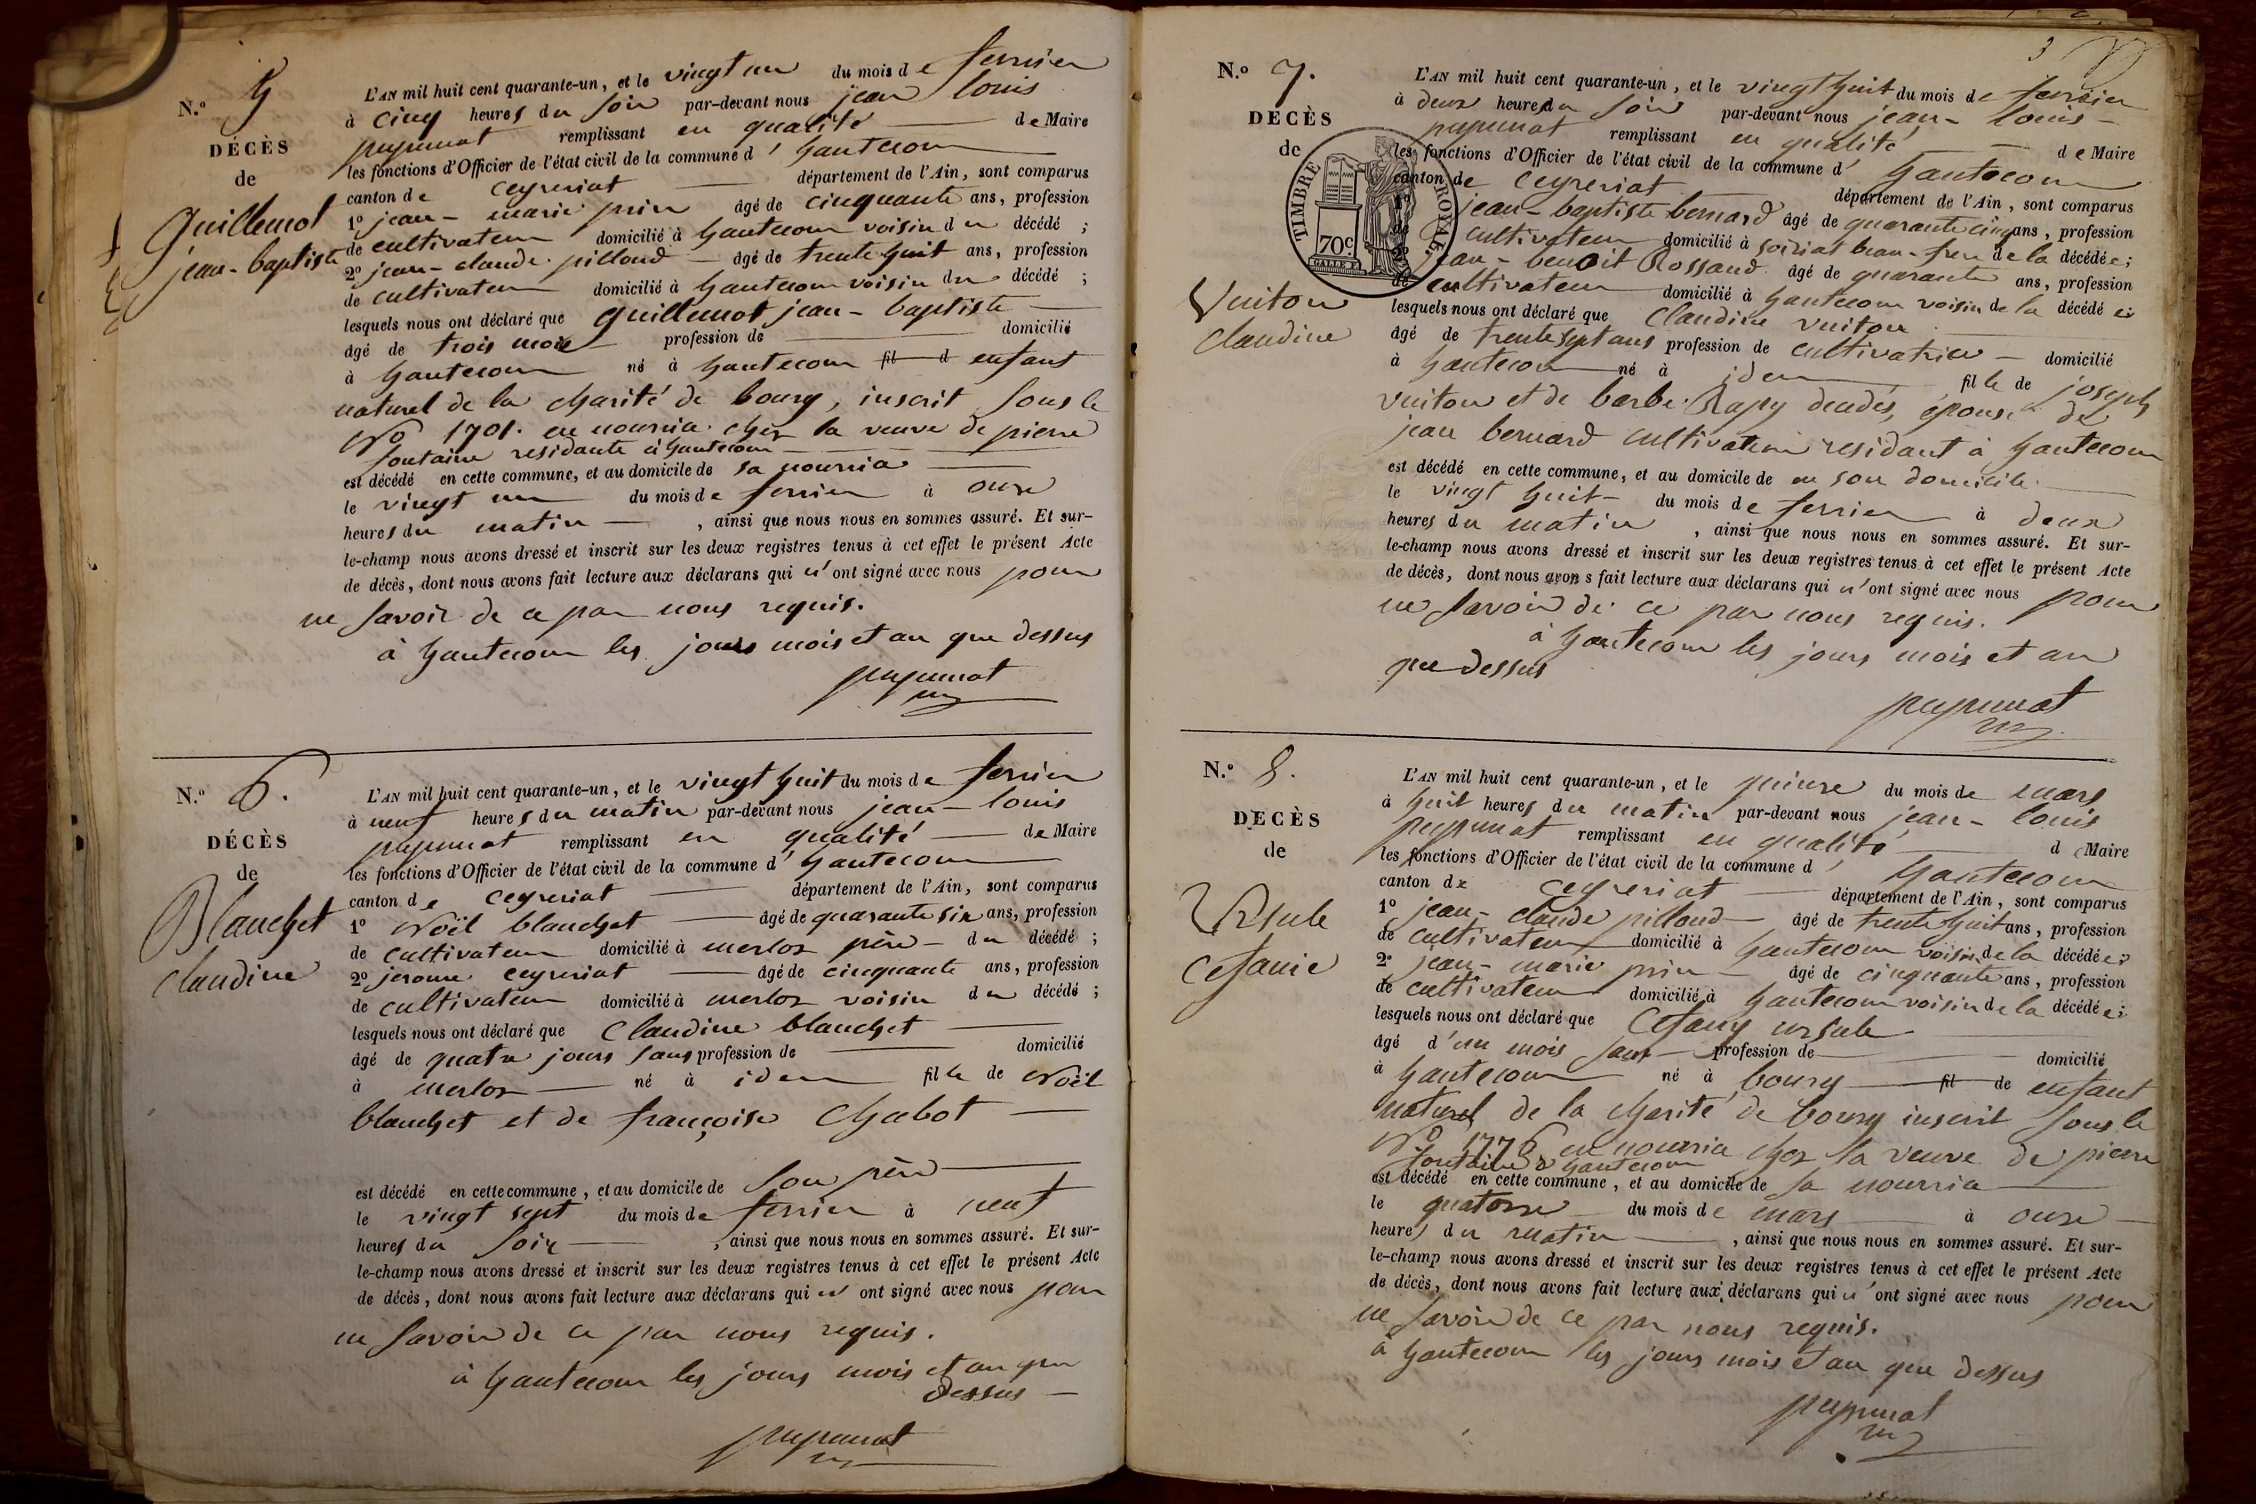 N.º 5
DÉCÈS
de
Guillemot
jean-baptiste
L'AN mil huit cent quarante-un, et le vingt un du mois de ferrier
à cinq heures du soir par-devant nous jean louis
puypunat remplissant en qualité de Maire
les fonctions d'Officier de l'état civil de la commune d'hautecour
canton de ceyseriat département de l'Ain, sont comparus
1º jean-marie prin âgé de cinquante ans, profession
de cultivateur domicilié à hautecour voisin du décédé ;
2º jean-claude pilloud âgé de trente huit ans, profession
de cultivateur domicilié à hautecour voisin du décédé ;
lesquels nous ont déclaré que guillemot jean-baptiste
âgé de trois mois profession de domicilié
à hautecour né à hautecour fil d enfant
naturel de la charité de bourg, inscrit sous le
Nº 1701. en nourrice chez la veuve de pierre
fontaine residante à hautecour
est décédé en cette commune, et au domicile de sa nourrice
le vingt un du mois de ferrier à onze
heures du matin, ainsi que nous nous en sommes assuré. Et sur-
le-champ nous avons dressé et inscrit sur les deux registres tenus à cet effet le présent Acte
de décès, dont nous avons fait lecture aux déclarans qui n'ont signé avec nous pour
ne savoir de ce par nous requis.
à hautecour les jours mois et an que dessus
N.º 6.
DÉCÈS
de
Blanchet
claudine
L'AN mil huit cent quarante-un, et le vingt huit du mois de ferrier
à neuf heures du matin par-devant nous jean-louis
puypunat remplissant en qualité de Maire
les fonctions d'Officier de l'état civil de la commune d'hautecour
canton de ceyseriat département de l'Ain, sont comparus
1º Noël blanchet âgé de quarante six ans, profession
de cultivateur domicilié à merloz père du décédé ;
2º jerome ceyseriat âgé de cinquante ans, profession
de cultivateur domicilié à merloz voisin du décédé ;
lesquels nous ont déclaré que Claudine blanchet
âgé de quatre jours sans profession de domicilié
à merloz né à idem fille de Noël
blanchet et de françoise Chabot
est décédé en cette commune, et au domicile de son père
le vingt sept du mois de ferrier à neuf
heures du soir, ainsi que nous nous en sommes assuré. Et sur-
le-champ nous avons dressé et inscrit sur les deux registres tenus à cet effet le présent Acte
de décès, dont nous avons fait lecture aux déclarans qui n'ont signé avec nous pour
ne savoir de ce par nous requis.
à hautecour les jours mois et an que
dessus
3
N.º 7.
DÉCÈS
de
TIMBRE ROYAL
70c
Vuiton
claudine
L'AN mil huit cent quarante-un, et le vingt huit du mois de ferrier
à deux heures du soir par-devant nous jean-louis
puypunat remplissant en qualité de Maire
les fonctions d'Officier de l'état civil de la commune d'hautecour
canton de ceyseriat département de l'Ain, sont comparus
1º jean-baptiste bernard âgé de quarante cinq ans, profession
de cultivateur domicilié à soiriat beau-frere de la décédée ;
2º jean-benoit Rossand âgé de quarante ans, profession
de cultivateur domicilié à hautecour voisin de la décédée ;
lesquels nous ont déclaré que Claudine vuiton
âgé de trente sept ans profession de cultivatrice domicilié
à hautecour né à idem fille de joseph
vuiton et de barbe Rapy decdés, épouse de
jean bernard cultivateur residant à hautecour
est décédé en cette commune, et au domicile de en son domicile
le vingt huit du mois de ferrier à deux
heures du matin, ainsi que nous nous en sommes assuré. Et sur-
le-champ nous avons dressé et inscrit sur les deux registres tenus à cet effet le présent Acte
de décès, dont nous avons fait lecture aux déclarans qui n'ont signé avec nous pour
ne savoir de ce par nous requis.
à hautecour les jours mois et an
que dessus
N.º 8.
DÉCÈS
de
Ursule
Cefanie
L'AN mil huit cent quarante-un, et le quinze du mois de mars
à huit heures du matin par-devant nous jean-louis
puypunat remplissant en qualité de Maire
les fonctions d'Officier de l'état civil de la commune d'hautecour
canton de ceyseriat département de l'Ain, sont comparus
1º jean-claude pilloud âgé de trente huit ans, profession
de cultivateur domicilié à hautecour voisin de la décédée ;
2º jean-marie prin âgé de cinquante ans, profession
de cultivateur domicilié à hautecour voisin de la décédée ;
lesquels nous ont déclaré que Cefany ursule
âgé d'un mois sans profession de domicilié
à hautecour né à bourg fil de enfant
naturel de la charité de bourg inscrit sous le
Nº 1776 en nourrice chez la veuve de pierre
fontaine à hautecour
est décédé en cette commune, et au domicile de sa nourrice
le quatorze du mois de mars à onze
heures du matin, ainsi que nous nous en sommes assuré. Et sur-
le-champ nous avons dressé et inscrit sur les deux registres tenus à cet effet le présent Acte
de décès, dont nous avons fait lecture aux déclarans qui n'ont signé avec nous pour
ne savoir de ce par nous requis.
à hautecour les jours mois et an que dessus